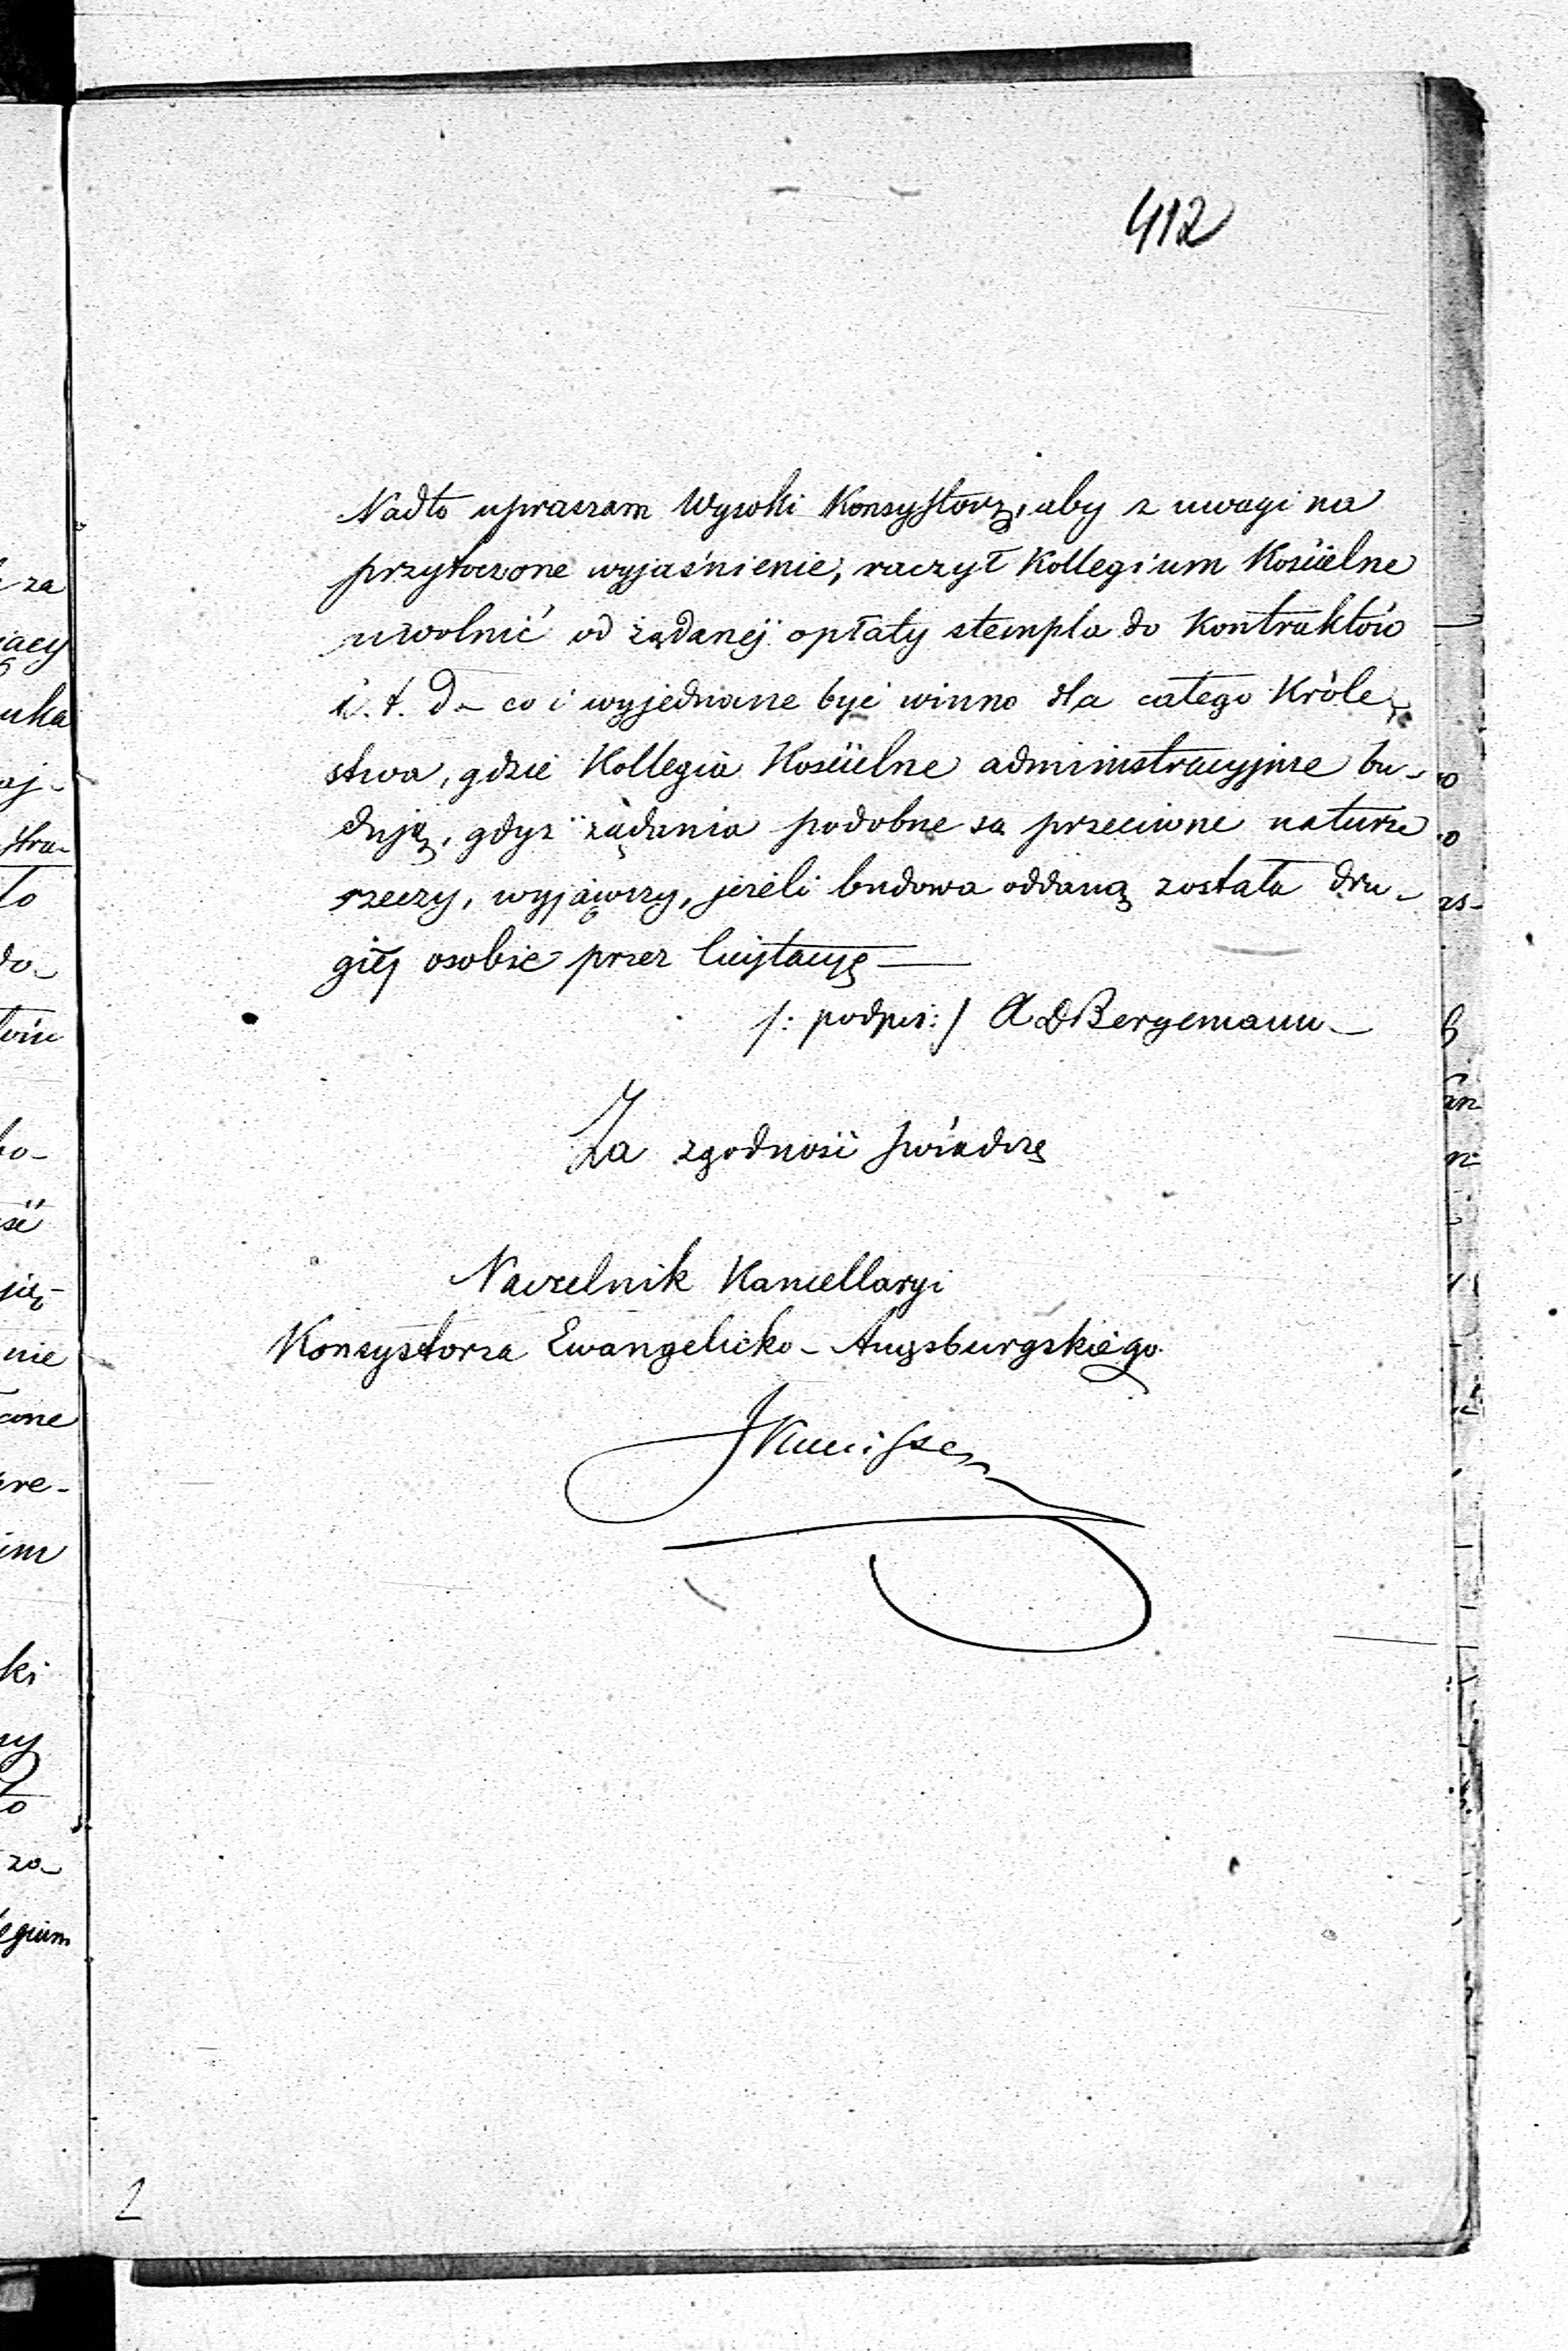 412
Nadto upraszam Wysoki Konsystorz, aby z uwagi na
przytoczone wyjaśnienie, raczył Kollegium Kościelne
uwolnić od żądanéj opłaty stempla do Kontraktów
i. t. d – co i wyjednane być winno dla całego Króle-
stwa, gdzie Kollegia Kościelne administracyjnie bu-
dują, gdyż żądania podobne są przeciwne naturze
rzeczy, wyjąwszy, jeżeli budowa oddaną została dru-
giéj osobie przez licytacyę —
/: podpis:/ A D Bergemann –
Za zgodność świadczę
Naczelnik Kancellaryi
Konsystorza Ewangelicko - Augsburgskiego
2